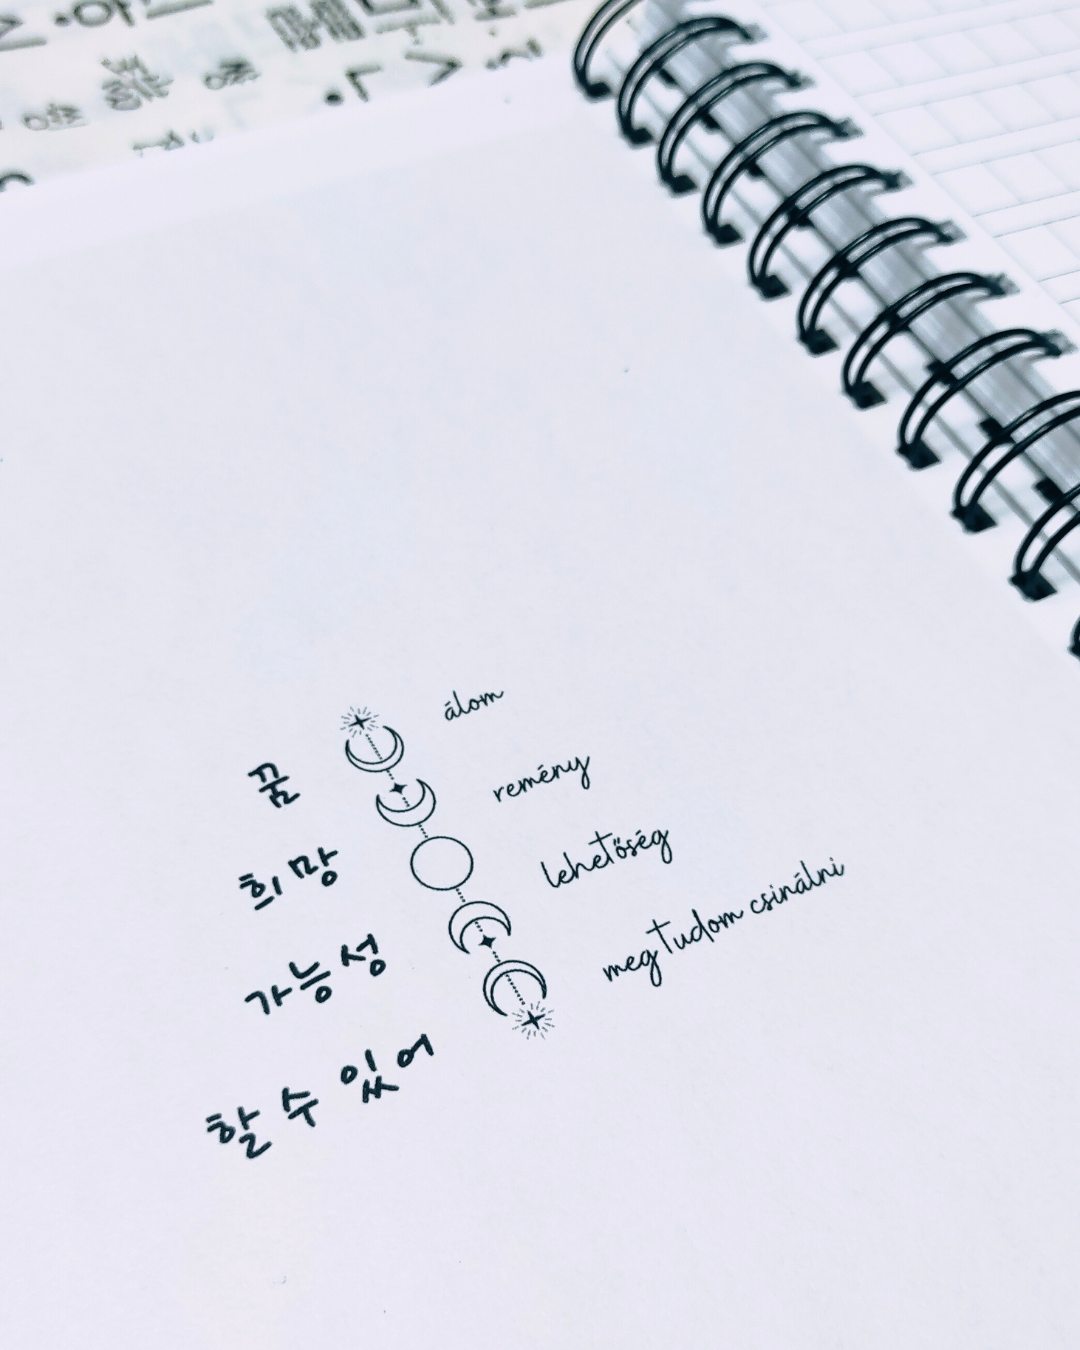 꿈
álom
희망
remény
가능성
lehetőség
할 수 있어
megtudom csinálni